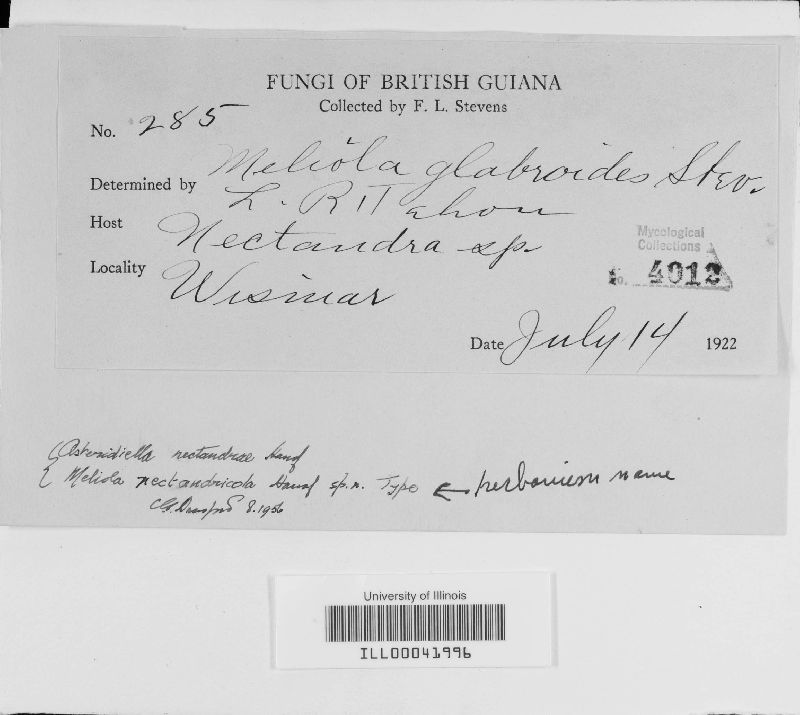 FUNGI OF BRITISH GUIANA
Collected by F. L. Stevens
No. 285
Meliola glabroides Stev.
Determined by L. R. Tehon
Host Nectandra sp
Locality Wismar
Mycological
Collections
No. 4012
Date July 14 1922
Asteridiella nectandrae Hansf
Meliola nectandricola Hansf sp. n. Type ← herbarium name
8.1956
University of Illinois
ILL00041996